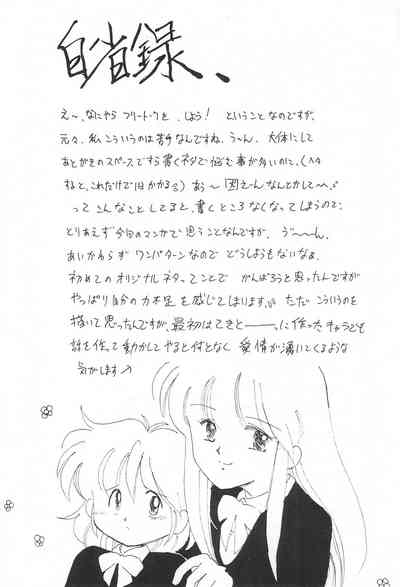 自省録、、
え〜、なにやら フリートークを しよう! ということなのですが、
元々、私こういうのは苦手なんですね、う〜ん、大体にして
あとがきのスペースですら書くネタで悩む事が多いのに、(^^
ねと、これだけで1日かかる あぅ〜 困え〜ん なんとかして〜
って こんなこと してると、書くところ なくなってしまうので、
とりあえず今回のマンガで思うことなんですが、ゔ〜〜ん、
あいかわらず ワンパターンなので どうしようもないなぁ、
初めてのオリジナルネタってことで がんばろうと思ったんですが
やっぱり自分の力不足を感じてしまいます。 ただ こういうのを
描いて思ったんですが、最初はてきと———、に作ったキャラでも
話を作って動かしてやると何となく 愛情が湧いてくるような
気がします